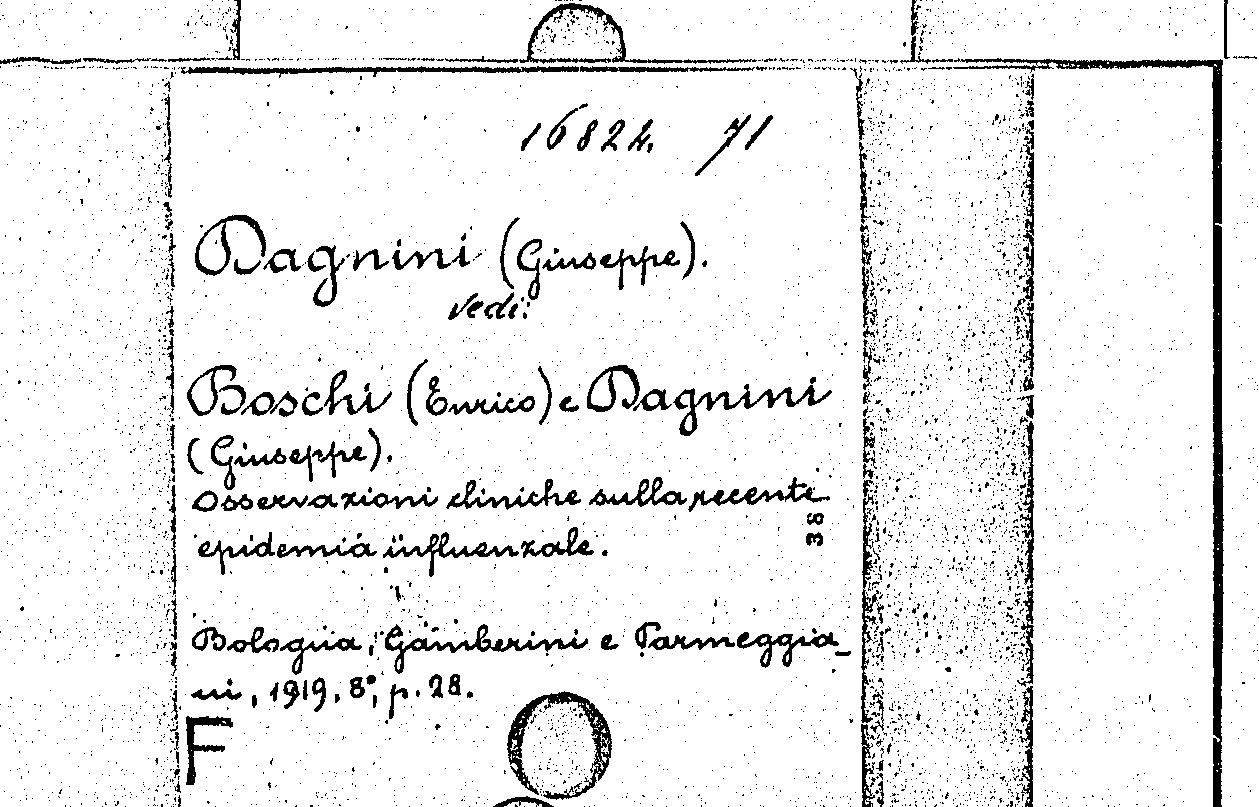 16824. 71
Dagnini (Giuseppe).
vedi:
Boschi (Enrico) e Dagnini
(Giuseppe).
Osservazioni cliniche sulla recente
38
epidemia influenzale.
Bologna, Gamberini e Parmeggia_
ni, 1919, 8°, p. 28.
F